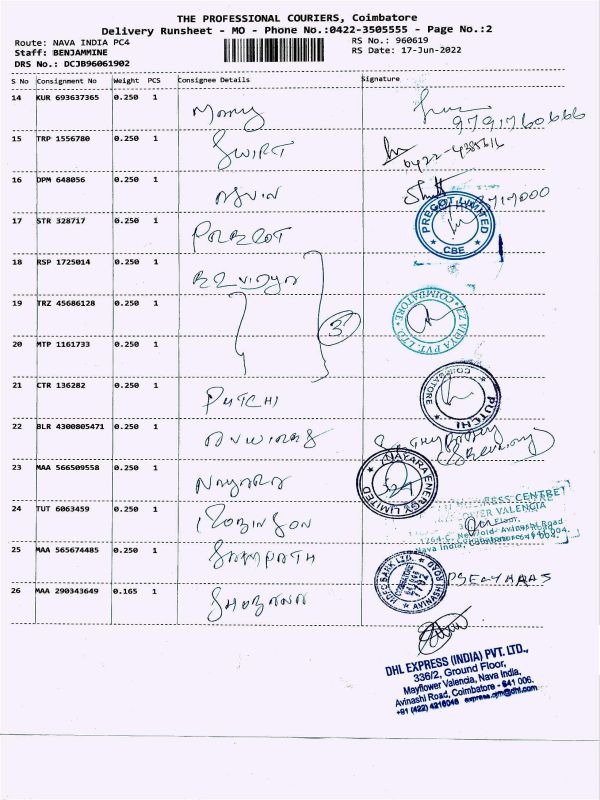 THE PROFESSIONAL COURIERS, Coimbatore
Delivery Runsheet - MO - Phone No.:0422-3505555 - Page No.:2
Route: NAVA INDIA PC4 RS No.: 960619
Staff: BENJAMMINE RS Date: 17-Jun-2022
DRS No.: DCJB96061902
S No Consignment No Weight PCS Consignee Details Signature
14 KUR 693637365 0.250 1
9791760666
15 TRP 1556780 0.250 1 SWIRT
0422-4385616
16 DPM 648056 0.250 1
17 STR 328717 0.250 1 PRECOT
PRECOT LIMITED
CBE
18 RSP 1725014 0.250 1 EZ vidya
19 TRZ 45686128 0.250 1
EZ VIDYA PVT. LTD. COIMBATORE
3
20 MTP 1161733 0.250 1
21 CTR 136282 0.250 1 PUTCHI
PUTCHI COIMBATORE
22 BLR 4300805471 0.250 1
23 MAA 566509558 0.250 1 NAYARA
NAYARA ENERGY LIMITED
24 TUT 6063459 0.250 1 ROBINSON
BUSINESS CENTRE
VALENCIA
Floor,
Avinashi Road
Nava India, Coimbatore-641 004.
25 MAA 565674485 0.250 1 SAMPATH
HDFC BANK LTD. AVINASHI ROAD
26 MAA 290343649 0.165 1 SHOBANA
DHL EXPRESS (INDIA) PVT. LTD.,
336/2, Ground Floor,
Mayflower Valencia, Nava India,
Avinashi Road, Coimbatore - 641 006.
+91 (422) 4216046